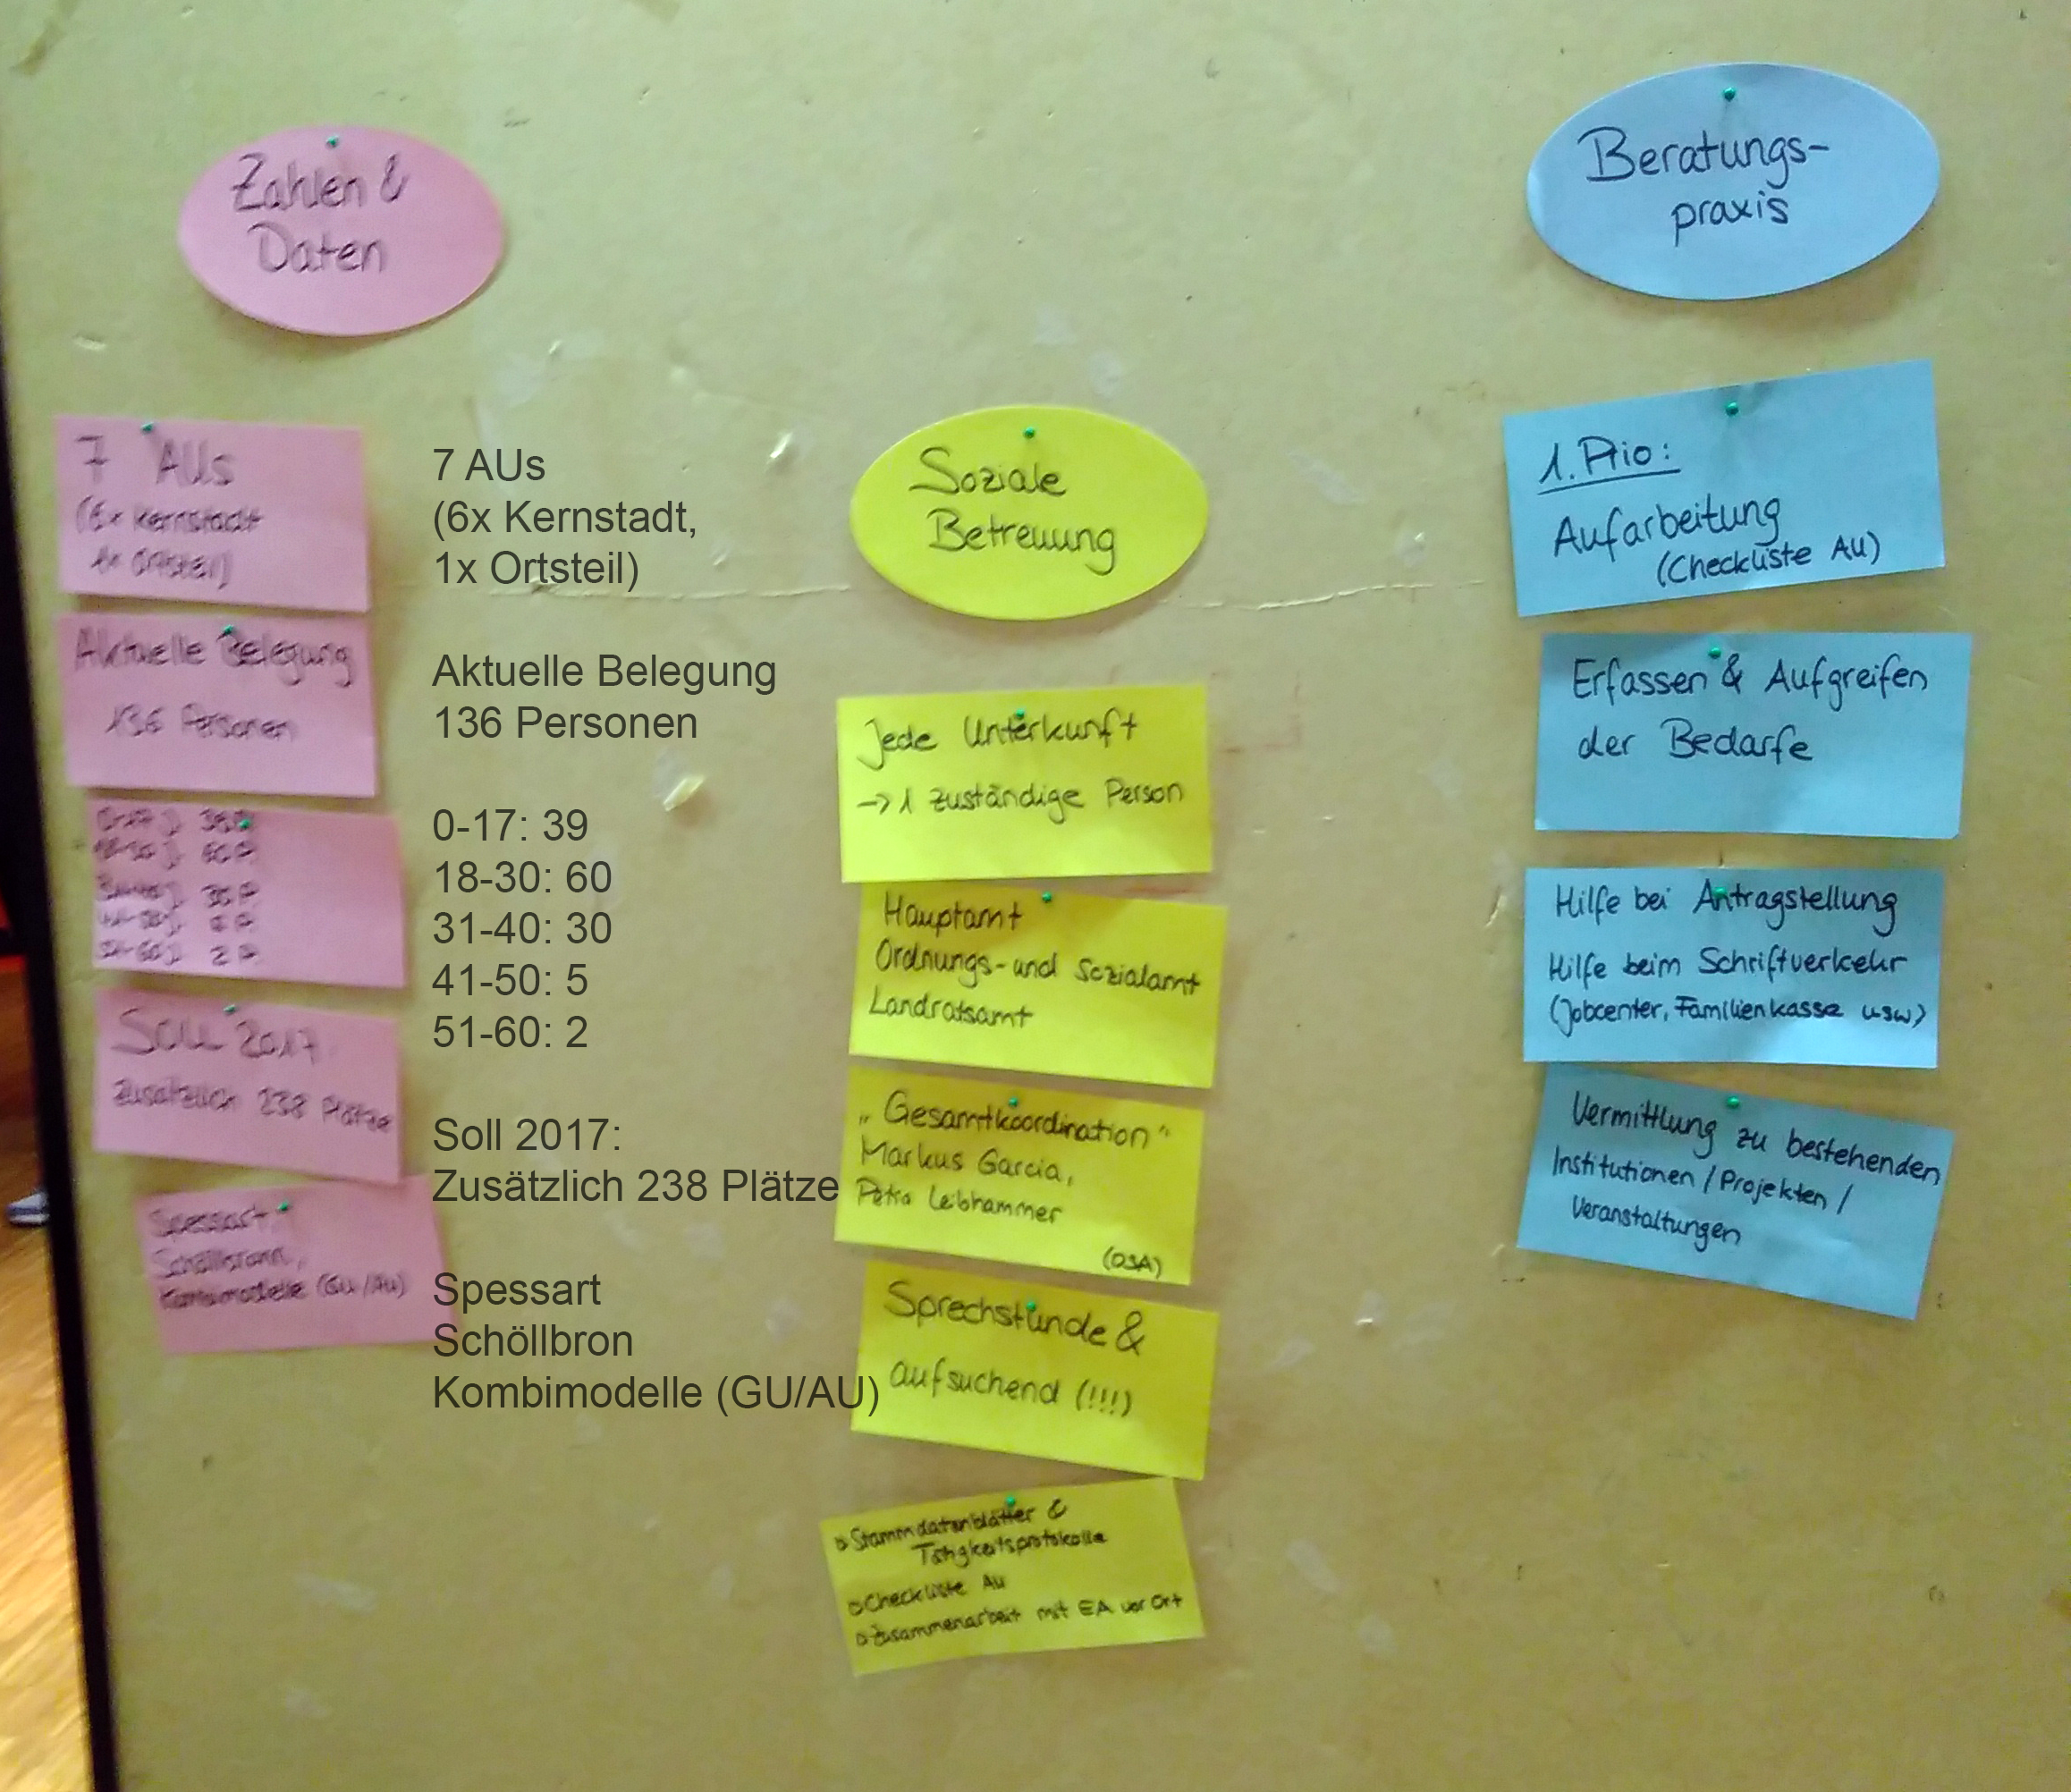 Zahlen &
Daten
7 AUs
(6x Kernstadt
1x Ortsteil)
Aktuelle Belegung
136 Personen
0-17 J. 39 P.
18-30 J. 60 P.
31-40 J. 30 P.
41-50 J. 5 P.
51-60 J. 2 P.
Soll 2017
zusätzlich 238 Plätze
Spessart,
Schöllbronn,
Kombimodelle (GU/AU)
7 AUs
(6x Kernstadt,
1x Ortsteil)
Aktuelle Belegung
136 Personen
0-17: 39
18-30: 60
31-40: 30
41-50: 5
51-60: 2
Soll 2017:
Zusätzlich 238 Plätze
Spessart
Schöllbron
Kombimodelle (GU/AU)
Soziale
Betreuung
Jede Unterkunft
-> 1 zuständige Person
Hauptamt
Ordnungs- und Sozialamt
Landratsamt
„Gesamtkoordination"
Markus Garcia,
Petra Leibhammer
(OSA)
Sprechstunde &
aufsuchend (!!!)
Stammdatenblätter &
Tätigkeitsprotokolle
Checkliste AU
Zusammenarbeit mit EA vor Ort
Beratungs-
praxis
1. Prio:
Aufarbeitung
(Checkliste AU)
Erfassen & Aufgreifen
der Bedarfe
Hilfe bei Antragstellung
Hilfe beim Schriftverkehr
(Jobcenter, Familienkasse usw)
Vermittlung zu bestehenden
Institutionen / Projekten /
Veranstaltungen